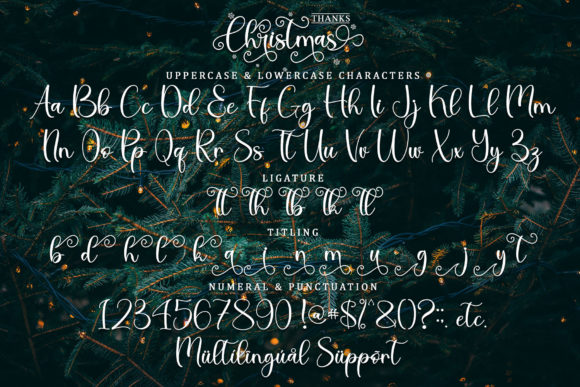 THANKS
Christmas
UPPERCASE & LOWERCASE CHARACTERS
Aa Bb Cc Dd Ee Ff Gg Hh Ii Jj Kk Ll Mm
Nn Oo Pp Qq Rr Ss Tt Uu Vv Ww Xx Yy Zz
LIGATURE
tt th tb tk tl
TITLING
b d h l k a i n m u g j y t
NUMERAL & PUNCTUATION
1234567890!@#$%^&()?:;, etc.
Multilingual Support